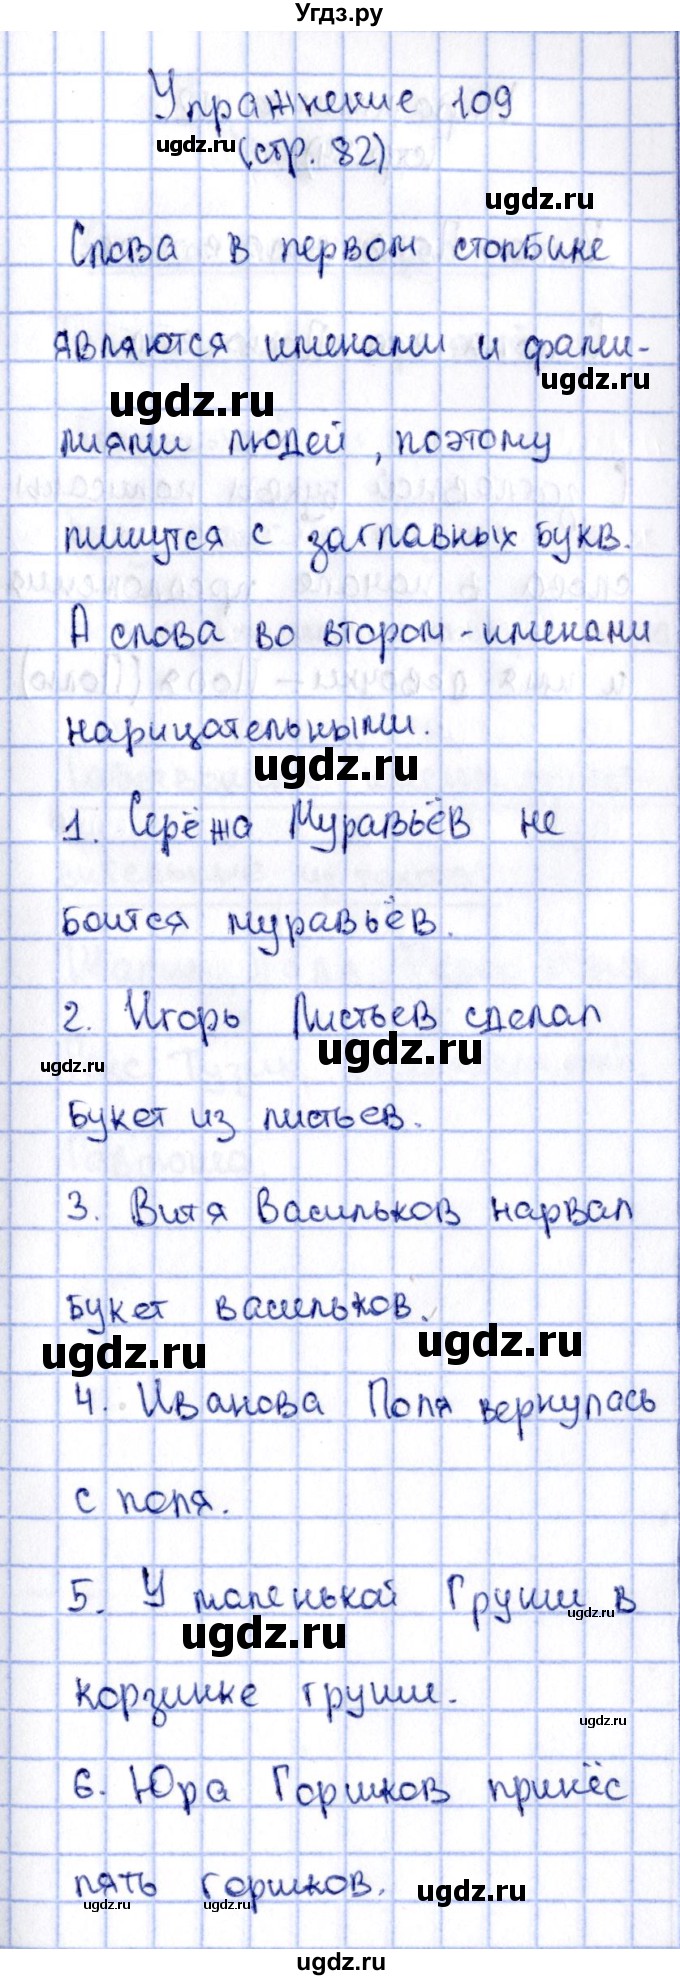 Угдз.ру
Упражнение 109
ugdz.ru (стр. 82)
ugdz.ru
Слова в первом столбике
являются именами и фами-
ugdz.ru
ugdz.ru
лиями людей, поэтому
пишутся с заглавных букв.
А слова во втором - именами
нарицательными.
ugdz.ru
1. Серёжа Муравьёв не
боится муравьёв.
2. Игорь Листьев сделал
ugdz.ru
ugdz.ru
букет из листьев.
3. Витя Васильков нарвал
букет васильков.
ugdz.ru
ugdz.ru
4. Иванова Поля вернулась
с поля.
5. У маленькой Груши в
ugdz.ru
ugdz.ru
корзинке груши.
ugdz.ru
6. Юра Горшков принёс
пять горшков.
ugdz.ru
ugdz.ru
ugdz.ru
ugdz.ru